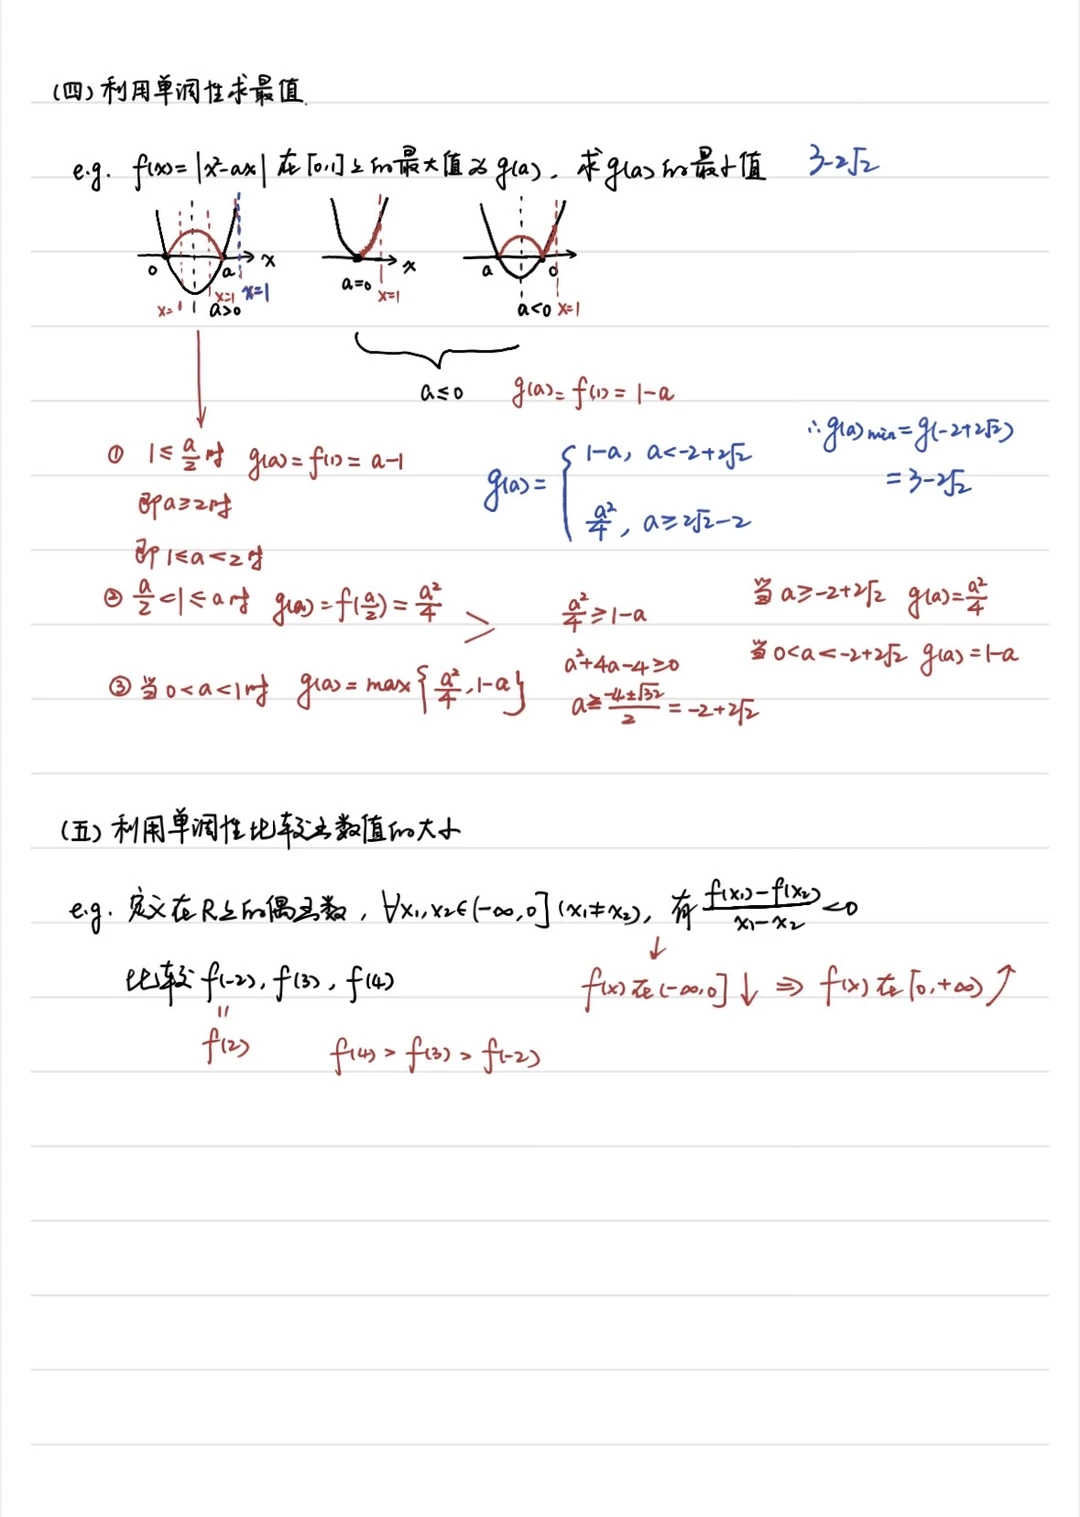 (四)利用单调性求最值
e.g. f(x)=|x²-ax| 在[0,1]上的最大值为g(a),求g(a)的最小值 3-2√2
0 a x x=1 x=1 x=1 a>0
x a=0 x=1
a 0 a<0 x=1
a≤0 g(a)=f(1)=1-a
① 1≤a/2时 g(a)=f(1)=a-1
即a≥2时
即1≤a<2时
② a/2<1≤a时 g(a)=f(a/2)=a²/4
③ 当0<a<1时 g(a)=max{a²/4,1-a}
a²/4≥1-a
a²+4a-4≥0
a≥(-4±√32)/2=-2+2√2
当a≥-2+2√2 g(a)=a²/4
当0<a<-2+2√2 g(a)=1-a
g(a)={1-a, a<-2+2√2
a²/4, a≥2√2-2
∴g(a)min=g(-2+2√2)
=3-2√2
(五)利用单调性比较函数值的大小
e.g. 定义在R上的偶函数,∀x₁,x₂∈(-∞,0](x₁≠x₂),有(f(x₁)-f(x₂))/(x₁-x₂)<0
↓
比较f(-2),f(3),f(4)
f(x)在(-∞,0]↓ ⇒ f(x)在[0,+∞)↗
=
f(2)
f(4)>f(3)>f(-2)